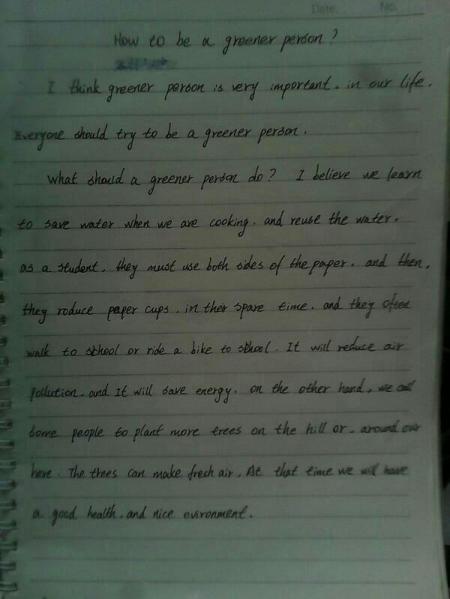 Date. No.
How to be a greener person?
I think greener person is very important. in our life.
Everyone should try to be a greener person.
What should a greener person do? I believe we learn
to save water when we are cooking. and reuse the water.
as a student. they must use both sides of the paper. and then.
they roduce paper cups. in ther spare time. and they often
walk to school or ride a bike to school. It will reduce air
pollution. and It will save energy. on the other hand, we call
some people to plant more trees on the hill or. around our
here. The trees can make fresh air. At that time we will have
a good health. and nice evironment.